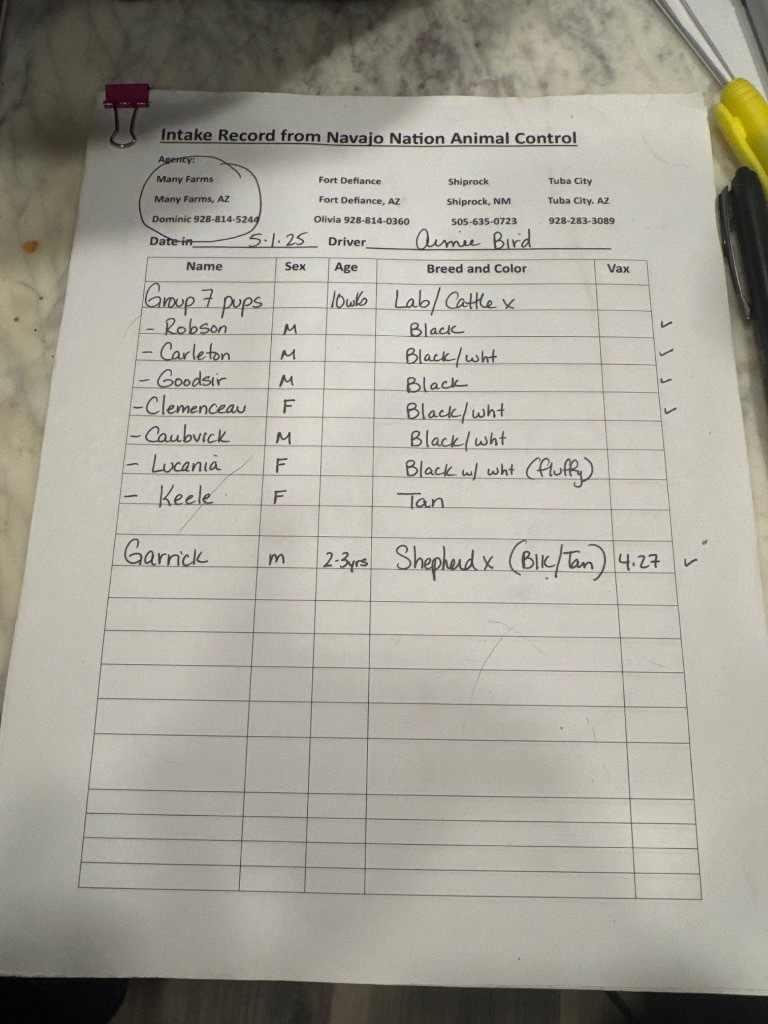 Intake Record from Navajo Nation Animal Control
Agency:
Many Farms Fort Defiance Shiprock Tuba City
Many Farms, AZ Fort Defiance, AZ Shiprock, NM Tuba City. AZ
Dominic 928-814-5244 Olivia 928-814-0360 505-635-0723 928-283-3089
Date in 5.1.25 Driver Aimee Bird
Name Sex Age Breed and Color Vax
Group 7 pups 10wks Lab/Cattle x
- Robson M Black ✓
- Carleton M Black/wht ✓
- Goodsir M Black ✓
- Clemenceau F Black/wht ✓
- Caubvick M Black/wht
- Lucania F Black w/ wht (fluffy)
- Keele F Tan
Garrick m 2-3yrs Shepherd x (Blk/Tan) 4.27 ✓